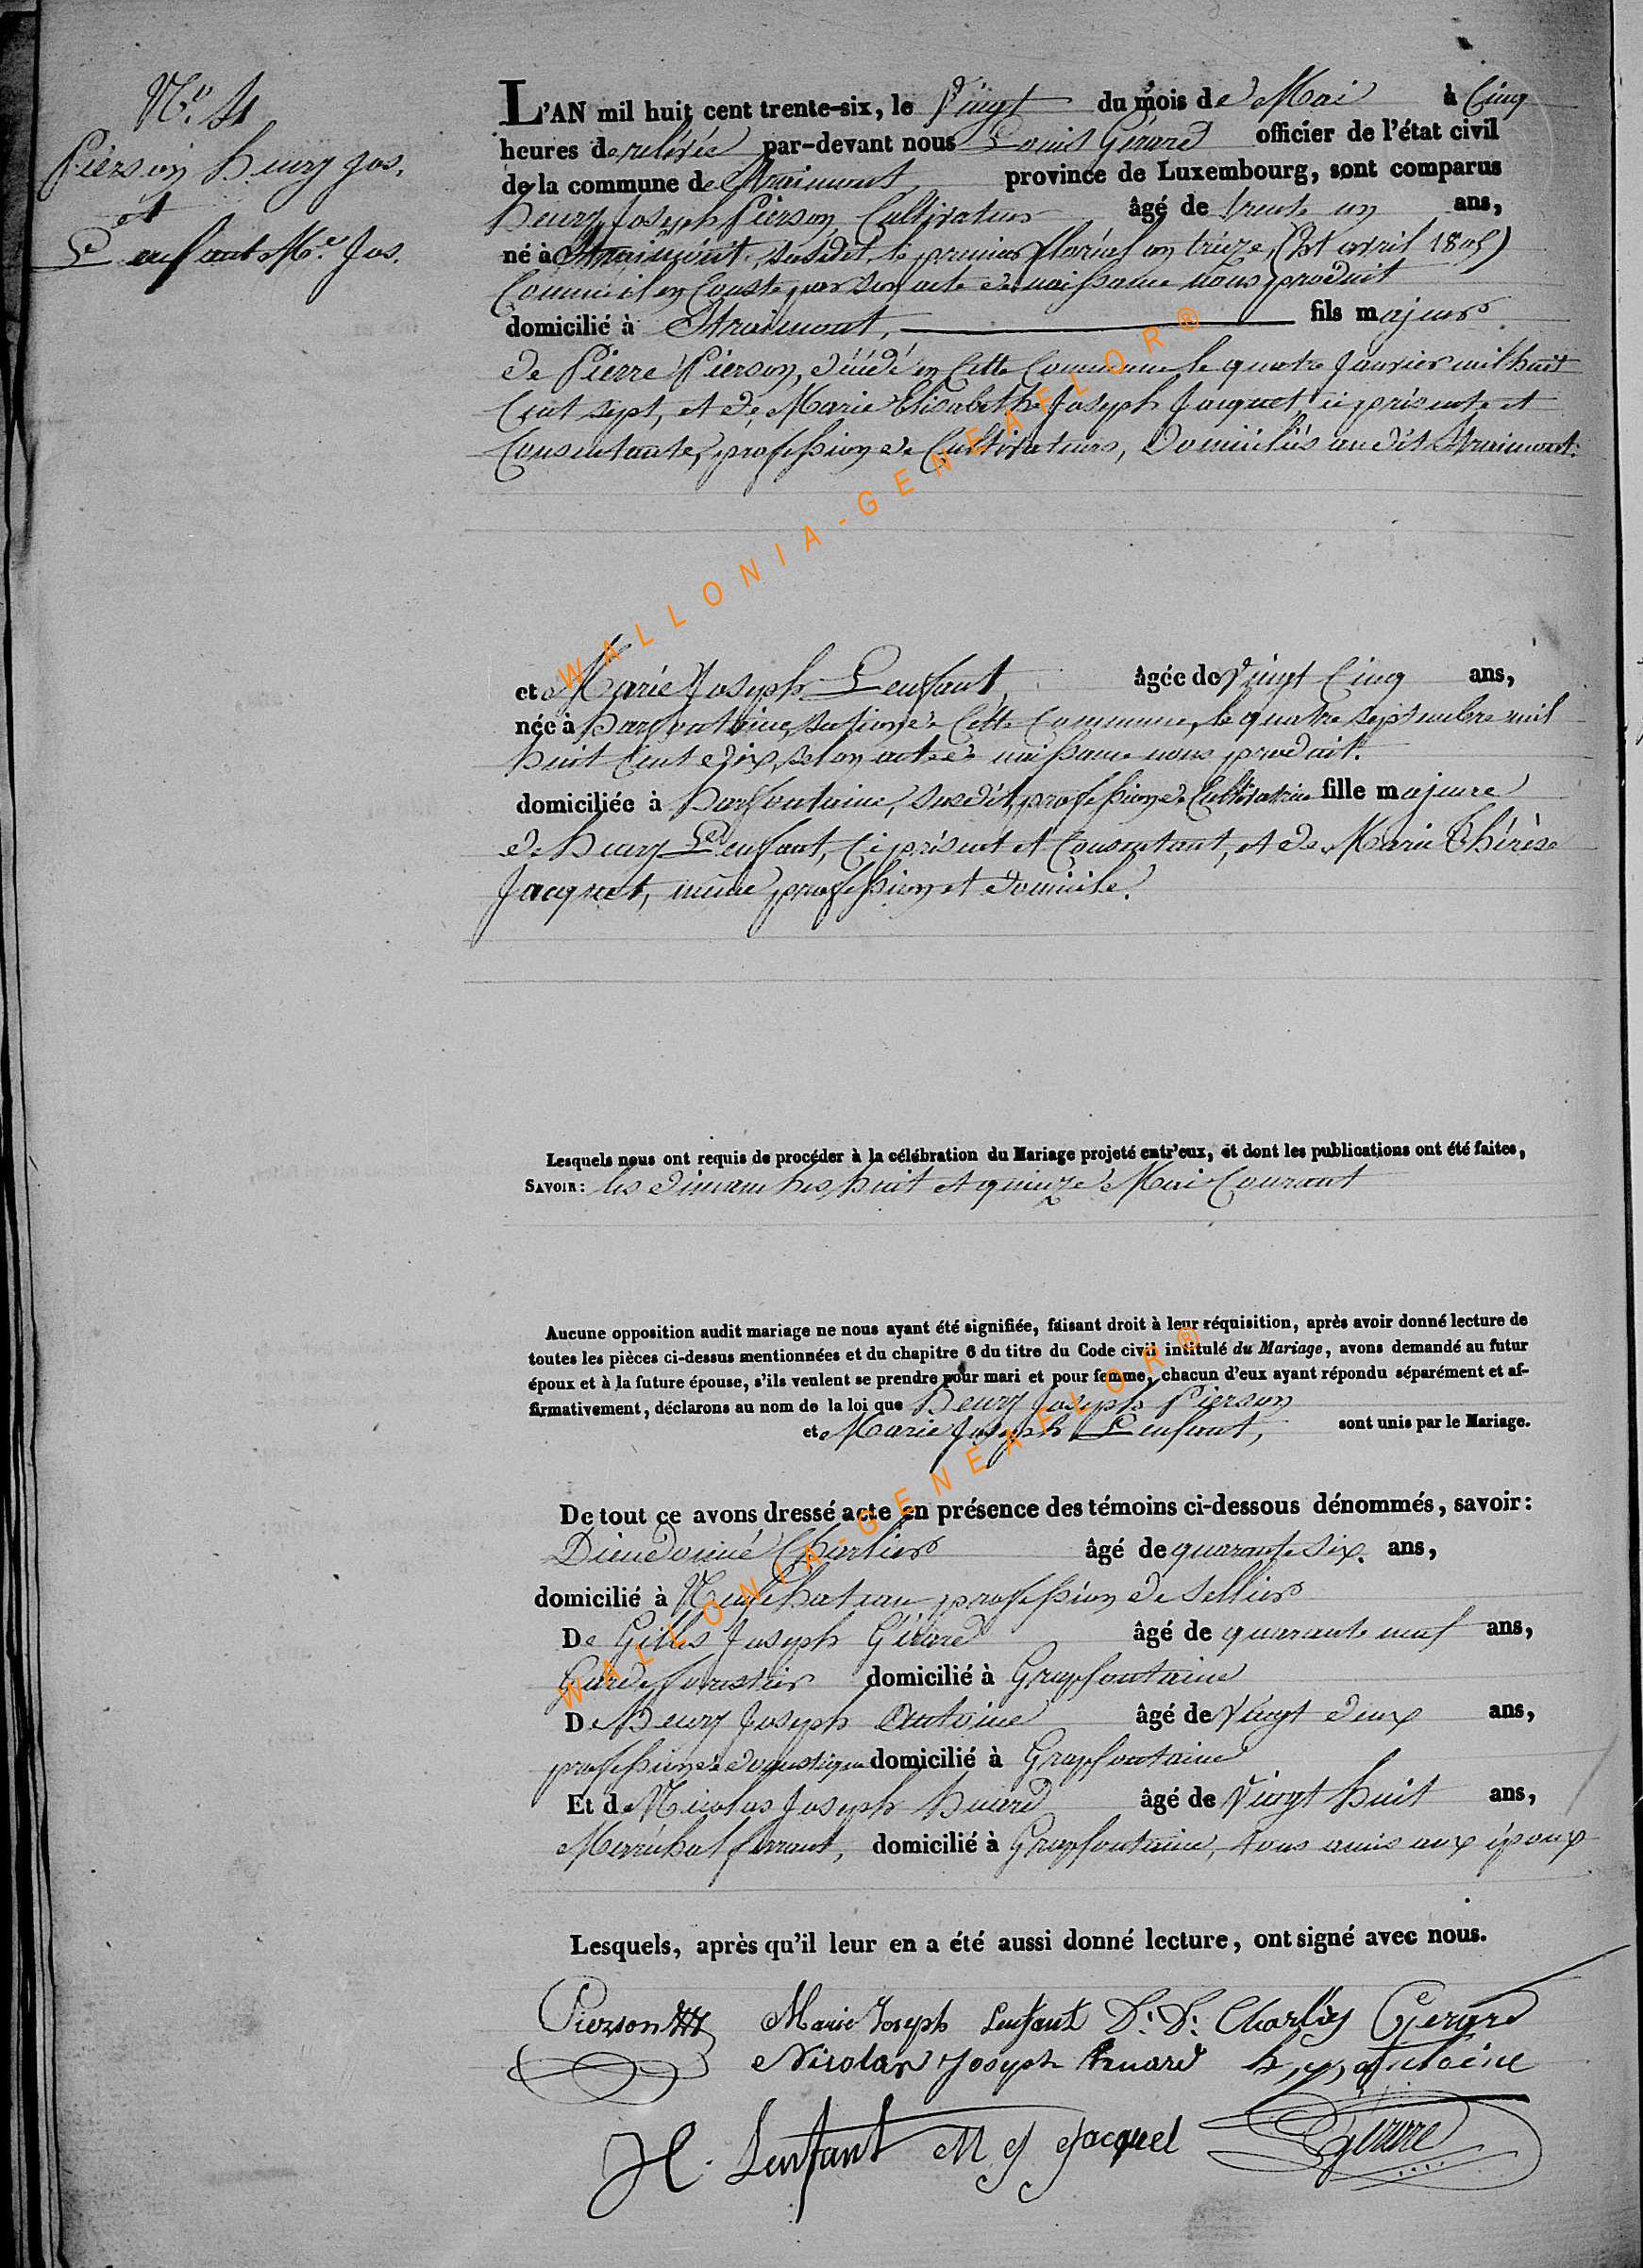 N.° 4
Pierson henry Jos.
et
Lenfant M.e Jos.
L'AN mil huit cent trente-six, le Vingt du mois de Mai à Cinq
heures de relevée par-devant nous Louis Gérard officier de l'état civil
de la commune de Straimont province de Luxembourg, sont comparus
henry Joseph Pierson, Cultivateur âgé de trente un ans,
né à Straimont, susdit, le premier floréal an treize, (21 avril 1805)
Comme il en Conste par son acte de naissance nous produit
domicilié à Straimont, fils majeur
de Pierre Pierson, décédé en Cette Commune le quatre Janvier mil huit
Cent sept, et de Marie Elisabethe Joseph Jacquet ici présente et
Consentante, profession de Cultivateurs, Domiciliés audit Straimont.
et Marie Joseph Lenfant, âgée de Vingt Cinq ans,
née à harfontaine, section de Cette Commune, le quatre septembre mil
huit Cent dix, selon acte de naissance nous produit.
domiciliée à harfontaine, susdit, profession de Cultivatrice fille majeure
de henry Lenfant, Ci présent et Consentant, et de Marie Thérèse
Jacquet, même profession et domicile.
Lesquels nous ont requis de procéder à la célébration du Mariage projeté entr'eux, et dont les publications ont été faites,
SAVOIR: les dimanches huit et quinze Mai Courant
Aucune opposition audit mariage ne nous ayant été signifiée, faisant droit à leur réquisition, après avoir donné lecture de
toutes les pièces ci-dessus mentionnées et du chapitre 6 du titre du Code civil intitulé du Mariage, avons demandé au futur
époux et à la future épouse, s'ils veulent se prendre pour mari et pour femme, chacun d'eux ayant répondu séparément et af-
firmativement, déclarons au nom de la loi que henry Joseph Pierson
et Marie Joseph Lenfant, sont unis par le Mariage.
De tout ce avons dressé acte en présence des témoins ci-dessous dénommés, savoir:
Dieudonné Charlier âgé de quarante six. ans,
domicilié à Neufchateau profession de sellier
De Gilles Joseph Gérard âgé de quarante neuf ans,
Garde forestier domicilié à Grapfontaine
De henry Joseph Antoine âgé de Vingt deux ans,
profession de domestique domicilié à Grapfontaine
Et de Nicolas Joseph huard âgé de Vingt huit ans,
Maréchal ferrant, domicilié à Grapfontaine, tous amis aux époux
Lesquels, après qu'il leur en a été aussi donné lecture, ont signé avec nous.
Pierson Marie Joseph Lenfant D. D. Charlier Gerard
Nicolas Joseph huard h, j, antoine
H. Lenfant M J Jacquet Gérard
WALLONIA-GENEAELOR®
WALLONIA-GENEAELOR®